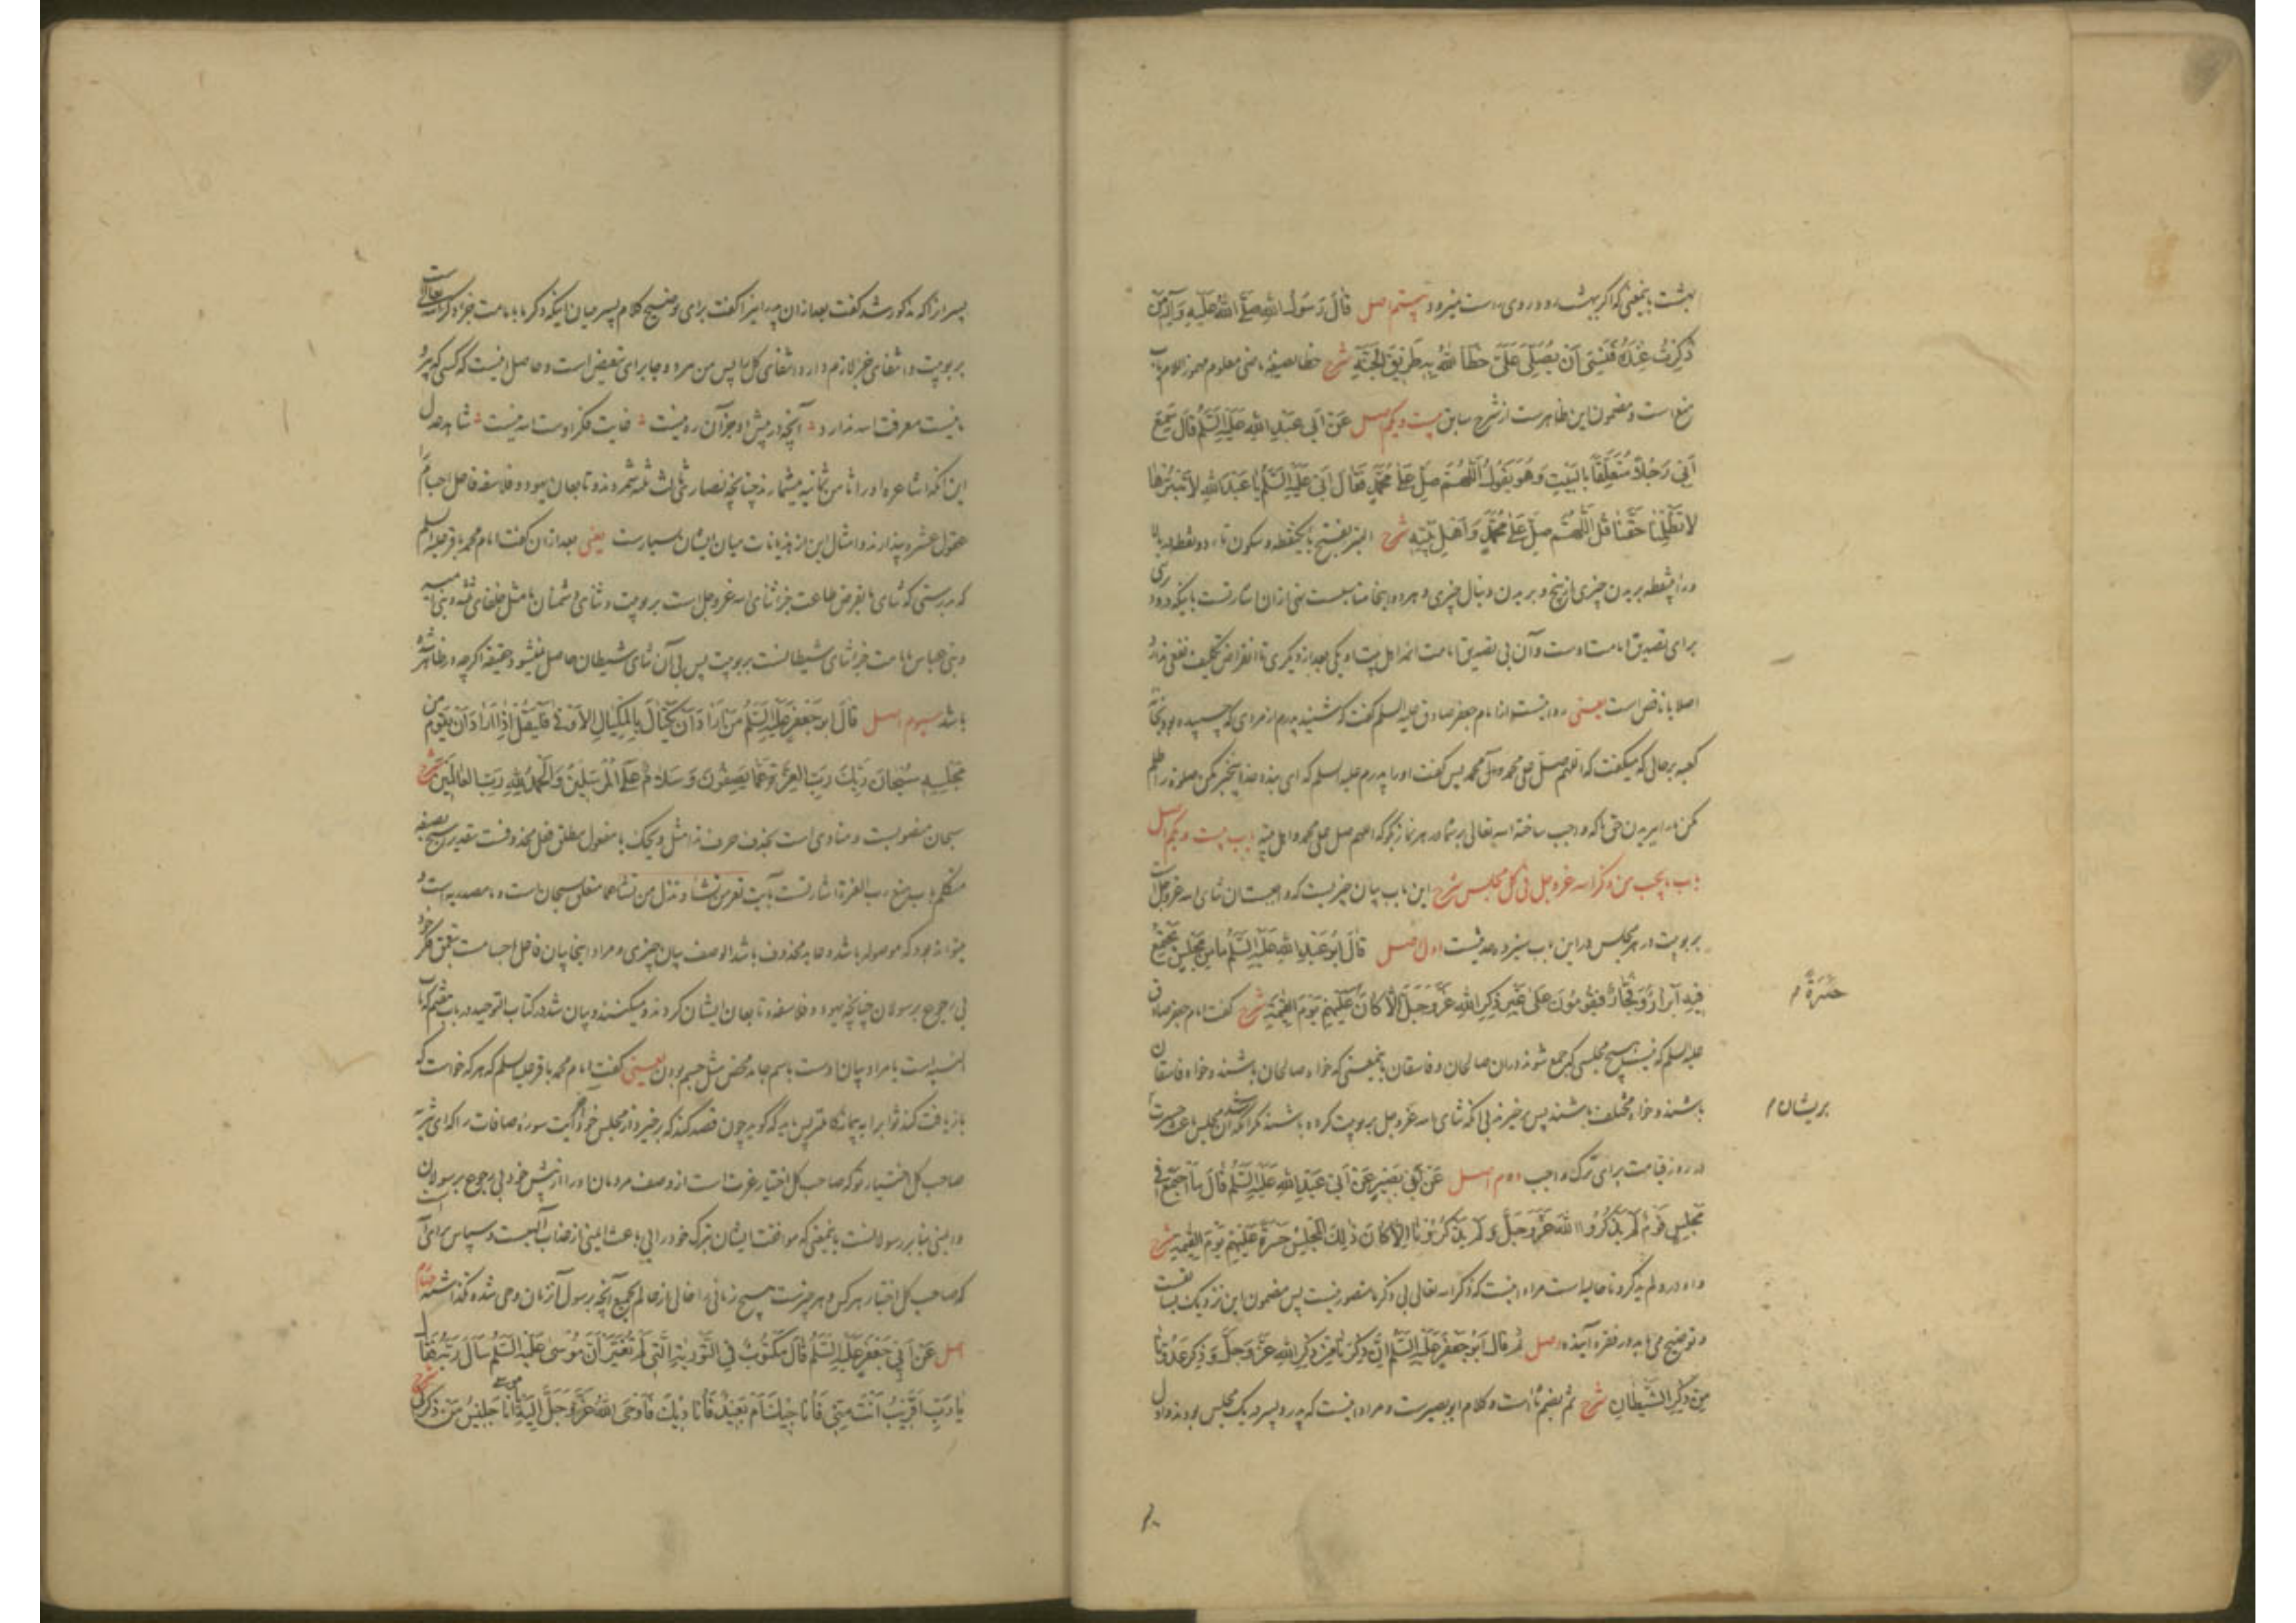 بهشت باینمعنی که اگر بهشت رود در وی راه راست نمیرود بیستم اصل قَالَ رَسُولُ اللهِ صَلَّى اللهُ عَلَيْهِ وَآلِهِ مَنْ
ذُكِرْتُ عِنْدَهُ فَنَسِيَ أَنْ يُصَلِّيَ عَلَيَّ خَطَأَ اللهُ بِهِ طَرِيقَ الْجَنَّةِ شرح خطا بصیغهٔ ماضی معلوم مهموز اللام باب
منع است و مضمون این ظاهرست از شرح سابق بیست و یکم اصل عَنْ أَبِي عَبْدِ اللهِ عَلَيْهِ السَّلَمُ قَالَ سَمِعَ
أَبِي رَجُلًا مُتَعَلِّقًا بِالْبَيْتِ وَهُوَ يَقُولُ اللَّهُمَّ صَلِّ عَلَى مُحَمَّدٍ فَقَالَ أَبِي عَلَيْهِ السَّلَمُ يَا عَبْدَ اللهِ لَا تَبْتُرْهَا
لَا تَظْلِمْنَا حَقَّنَا قُلْ اللَّهُمَّ صَلِّ عَلَى مُحَمَّدٍ وَأَهْلِ بَيْتِهِ شرح البتر بفتح با یکنقطه و سکون تاء دو نقطه در بالا
و را بینقطه بریدن چیزی از بیخ و بریدن دنبال چیزی و هر دو اینجا مناسبست نهی از ان اشارتست باینکه درود
برای تصدیق امامت اوست و آن بی تصدیق امامت ائمه اهل بیت او یکی بعد از دیگری تا انقراض تکلیف نفعی ندارد
اصلا یا ناقص است یعنی روایتست از امام جعفر صادق علیه السلم گفت که شنید پدرم از مردی که چسپیده بود بخانه
کعبه برحالی که میگفت که اللهم صل علی محمد پس گفت او را پدرم علیه السلم که ای بنده خدا بیخبر مکن صلوة را ظلم
مکن ما را ببریدن حق ما که واجب ساخته الله تعالی بر شما در هر نماز بگو که اللهم صل علی محمد و اهل بیته باب بیست و یکم اصل
باب ما یجب من ذکر الله عز وجل فی کل مجلس شرح این باب بیان چیزیست که واجبست از ثنای الله عز وجل
بربوبیت در هر مجلس در این باب سیزده حدیثست اول اصل قَالَ أَبُو عَبْدِ اللهِ عَلَيْهِ السَّلَمُ مَا مِنْ مَجْلِسٍ يَجْتَمِعُ
فِيهِ أَبْرَارٌ وَفُجَّارٌ فَيَقُومُونَ عَلَى غَيْرِ ذِكْرِ اللهِ عَزَّ وَجَلَّ إِلَّا كَانَ عَلَيْهِمْ يَوْمَ الْقِيمَةِ شرح گفت امام جعفر صادق
حَسْرَةً م
علیه السلم که نیست هیچ مجلسی که جمع شوند دران صالحان و فاسقان باینمعنی که خواه صالحان باشند و خواه فاسقان
باشند و خواه مختلف باشند پس برخیزند بی آنکه ثنای الله عز وجل بربوبیت کرده باشند مگر آنکه باشد آن مجلس باعث حسرت
بریشان م
در روز قیامت برای ترک واجب دوم اصل عَنْ أَبِي بَصِيرٍ عَنْ أَبِي عَبْدِ اللهِ عَلَيْهِ السَّلَمُ قَالَ مَا اجْتَمَعَ فِي
مَجْلِسٍ قَوْمٌ لَمْ يَذْكُرُوا اللهَ عَزَّ وَجَلَّ وَلَمْ يَذْكُرُونَا إِلَّا كَانَ ذَلِكَ الْمَجْلِسُ حَسْرَةً عَلَيْهِمْ يَوْمَ الْقِيمَةِ شرح
واو در ولم یذکرونا حالیه است مراد اینست که ذکر الله تعالی بی ذکر ما متصور نیست پس مضمون این نزدیک بسابقست
و توضیح می یابد در فقره آینده اصل ثُمَّ قَالَ أَبُو جَعْفَرٍ عَلَيْهِ السَّلَمُ إِنَّ ذِكْرَنَا مِنْ ذِكْرِ اللهِ عَزَّ وَجَلَّ وَذِكْرَ عَدُوِّنَا
مِنْ ذِكْرِ الشَّيْطَانِ شرح ثم بضم ثا است و کلام ابو بصیرست و مراد اینست که پدر و پسر در یک مجلس بودند و اول
پسر آنرا که مذکور شد گفت بعد از ان پدر اینرا گفت برای توضیح کلام پسر میان اینکه ذکر ما بامامت جزء ذکر الله تعالی است
بربوبیت و انتفای جزء لازم دارد انتفای کل را پس من هر دو جا برای تبعیض است و حاصل اینست که کسی که پیرو
ما نیست معرفت الله ندارد آنچه در پیش او جز آن ره نیست غایت فکر اوست الله نیست شاهد عدل
این آنکه اشاعره او را ثامن ثمانیه میشمارند چنانچه نصاری ثالث ثلثه شمردند و تابعان یهود و فلاسفه فاعل اجسام را
عقول عشره پندارند و امثال این از هذیانات میان ایشان بسیارست یعنی بعد از ان گفت امام محمد باقر علیه السلم
که بدرستی که ثنای ما بفرض طاعت جزء ثنای الله عز وجل است بربوبیت و ثنای دشمنان ما مثل خلفای ثلثه و بنی امیه
و بنی عباس بامامت جزء ثنای شیطانست بربوبیت پس بی آن ثنای شیطان حاصل نمیشود حقیقة اگرچه در ظاهر شده
باشد سیوم اصل قَالَ أَبُو جَعْفَرٍ عَلَيْهِ السَّلَمُ مَنْ أَرَادَ أَنْ يَكْتَالَ بِالْمِكْيَالِ الْأَوْفَى فَلْيَقُلْ إِذَا أَرَادَ أَنْ يَقُومَ مِنْ
مَجْلِسِهِ سُبْحَانَ رَبِّكَ رَبِّ الْعِزَّةِ عَمَّا يَصِفُونَ وَسَلَامٌ عَلَى الْمُرْسَلِينَ وَالْحَمْدُ لِلهِ رَبِّ الْعَالَمِينَ شرح
سبحان منصوبست و منادی است بحذف حرف ندا مثل ویحک یا مفعول مطلق فعل محذوفست بتقدیر اسبح بصیغهٔ
متکلم باب منع رب العزة اشارتست بآیت تعز من تشاء و تذل من تشاء عما متعلق بسبحان است و ما مصدریه است و
میتواند بود که موصوله باشد و عاید محذوف باشد الوصف بیان چیزی و مراد اینجا بیان فاعل اجسامست بتعمق فکر خود
بی رجوع برسولان چنانچه یهود و فلاسفه و تابعان ایشان کردند و میکنند و بیان شد در کتاب التوحید در باب
است یا مراد بیان اوست باسم جامد محض مثل جسم بودن یعنی گفت امام محمد باقر علیه السلم که هر که خواست که
بازیافت کند ثواب را به پیمانهٔ کاملتر پس باید که گوید چون قصد کند که برخیزد از مجلس خود آیت سورهٔ صافات را که ای
صاحب کل اختیار تو که صاحب کل اختیار عزت است از وصف مردمان او را از پیش خود بی رجوع برسولان
و ایمنی بنا بر رسولانست باینمعنی که موافقت ایشان بترک خودرایی باعث ایمنی از عذاب آلهیست و سپاس برای الله است
که صاحب کل اختیار هر کس و هر چیزست هیچ زمانی را خالی از عالم بجمیع آنچه برسول آنزمان وحی شده نگذاشته چهارم
اصل عَنْ أَبِي جَعْفَرٍ عَلَيْهِ السَّلَمُ قَالَ مَكْتُوبٌ فِي التَّوْرِيَةِ الَّتِي لَمْ تُغَيَّرْ أَنَّ مُوسَى عَلَيْهِ السَّلَمُ سَأَلَ رَبَّهُ فَقَالَ
يَا رَبِّ أَقَرِيبٌ أَنْتَ مِنِّي فَأُنَاجِيكَ أَمْ بَعِيدٌ فَأُنَادِيَكَ فَأَوْحَى اللهُ عَزَّ وَجَلَّ إِلَيْهِ يَا مُوسَى أَنَا جَلِيسُ مَنْ ذَكَرَنِي شرح